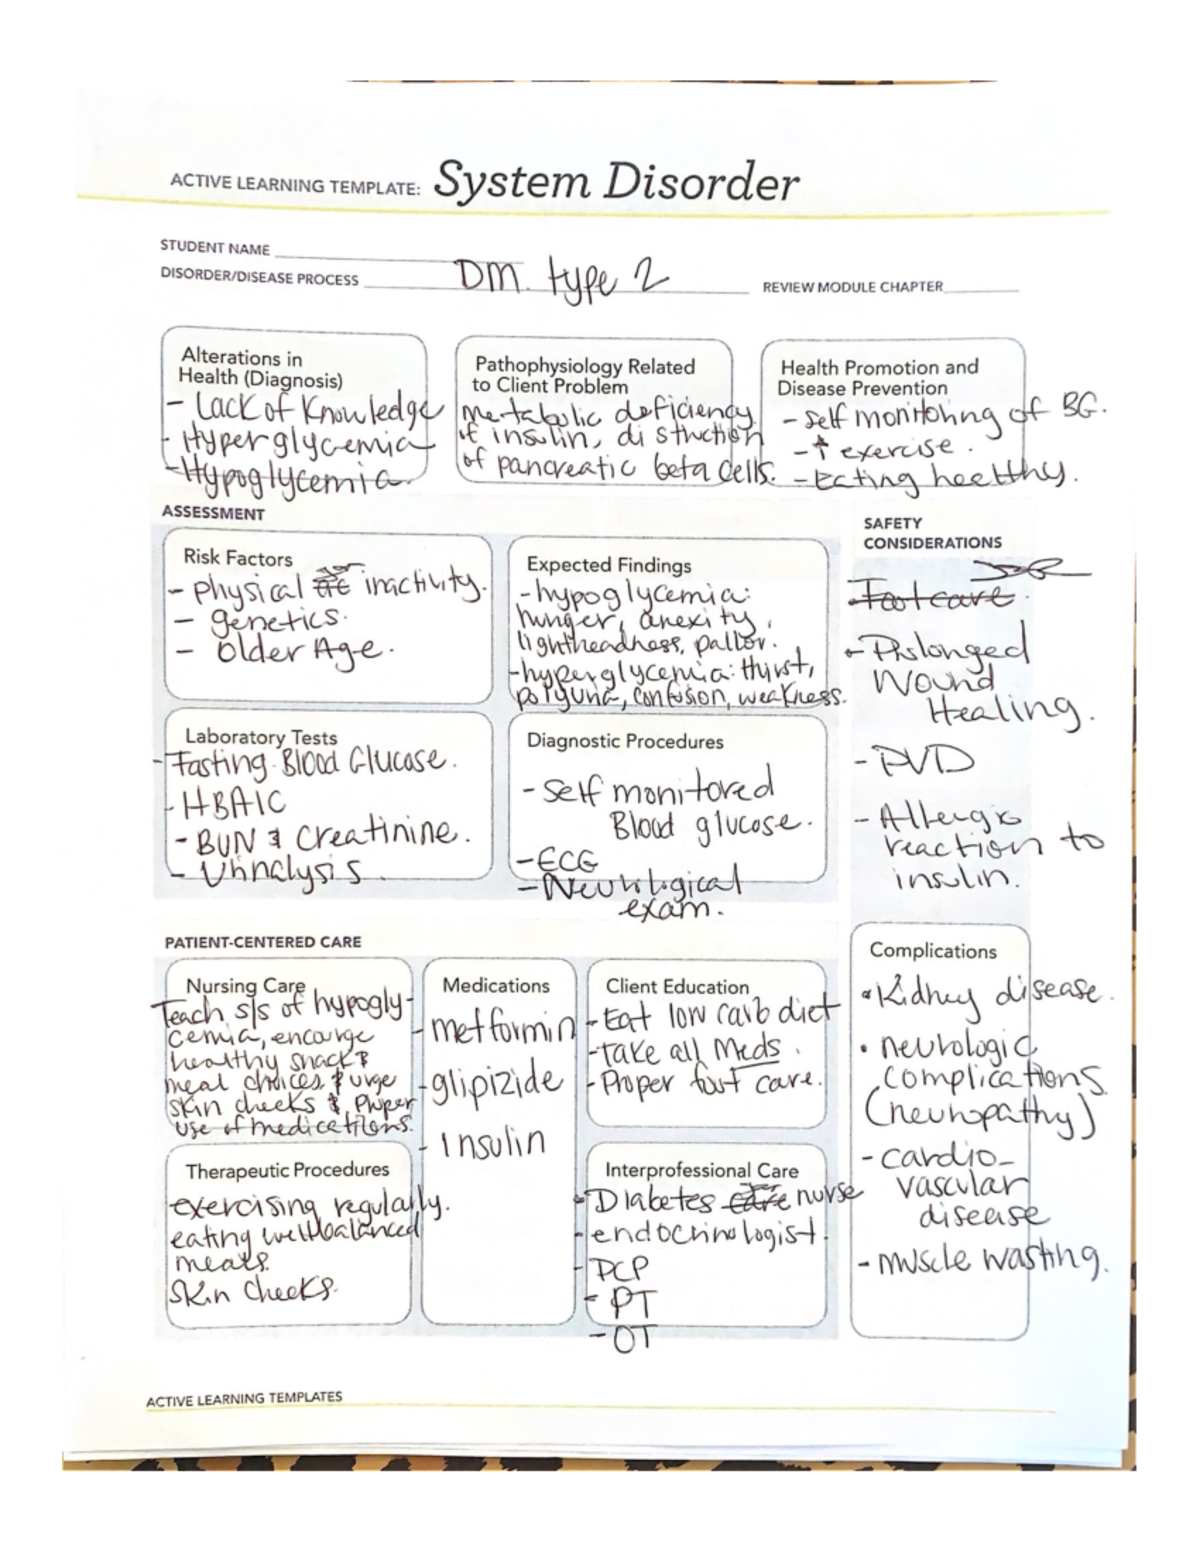 ACTIVE LEARNING TEMPLATE: System Disorder
STUDENT NAME
DISORDER/DISEASE PROCESS DM. type 2
REVIEW MODULE CHAPTER
Alterations in
Health (Diagnosis)
- Lack of Knowledge
- Hyperglycemia
- Hypoglycemia.
Pathophysiology Related
to Client Problem
Metabolic deficiency
of insulin, distruction
of pancreatic beta cells.
Health Promotion and
Disease Prevention
- self monitohng of BG.
- ↑ exercise.
- Eating heelthy.
ASSESSMENT
Risk Factors
- physical inactivity.
- genetics.
- older Age.
Expected Findings
- hypoglycemia:
hunger, anexity,
lightheadness, pallor.
- hyperglycemia: thirst,
polyuria, confusion, weakness.
Laboratory Tests
- Fasting Blood Glucose.
- HBA1C
- BUN & Creatinine.
- Urinalysis.
Diagnostic Procedures
- self monitored
Blood glucose.
- ECG
- Neurological
exam.
SAFETY
CONSIDERATIONS
Foot care.
- Prolonged
Wound
Healing.
- PVD
- Allergic
reaction to
insulin.
PATIENT-CENTERED CARE
Nursing Care
Teach s/s of hypogly-
cemia, encourge
healthy snack &
meal choices, & urge
skin checks & proper
use of medications.
Medications
- metformin
- glipizide
- Insulin
Client Education
- Eat low carb diet
- take all Meds.
- Proper foot care.
Therapeutic Procedures
exercising regularly.
eating wellbalanced
meals.
Skin checks.
Interprofessional Care
- Diabetes care nurse
- endocrinologist.
- PCP
- PT
- OT
Complications
• Kidney disease.
• neurologic
complications.
(neuropathy)
- cardio-
vascular
disease
- muscle wasting.
ACTIVE LEARNING TEMPLATES